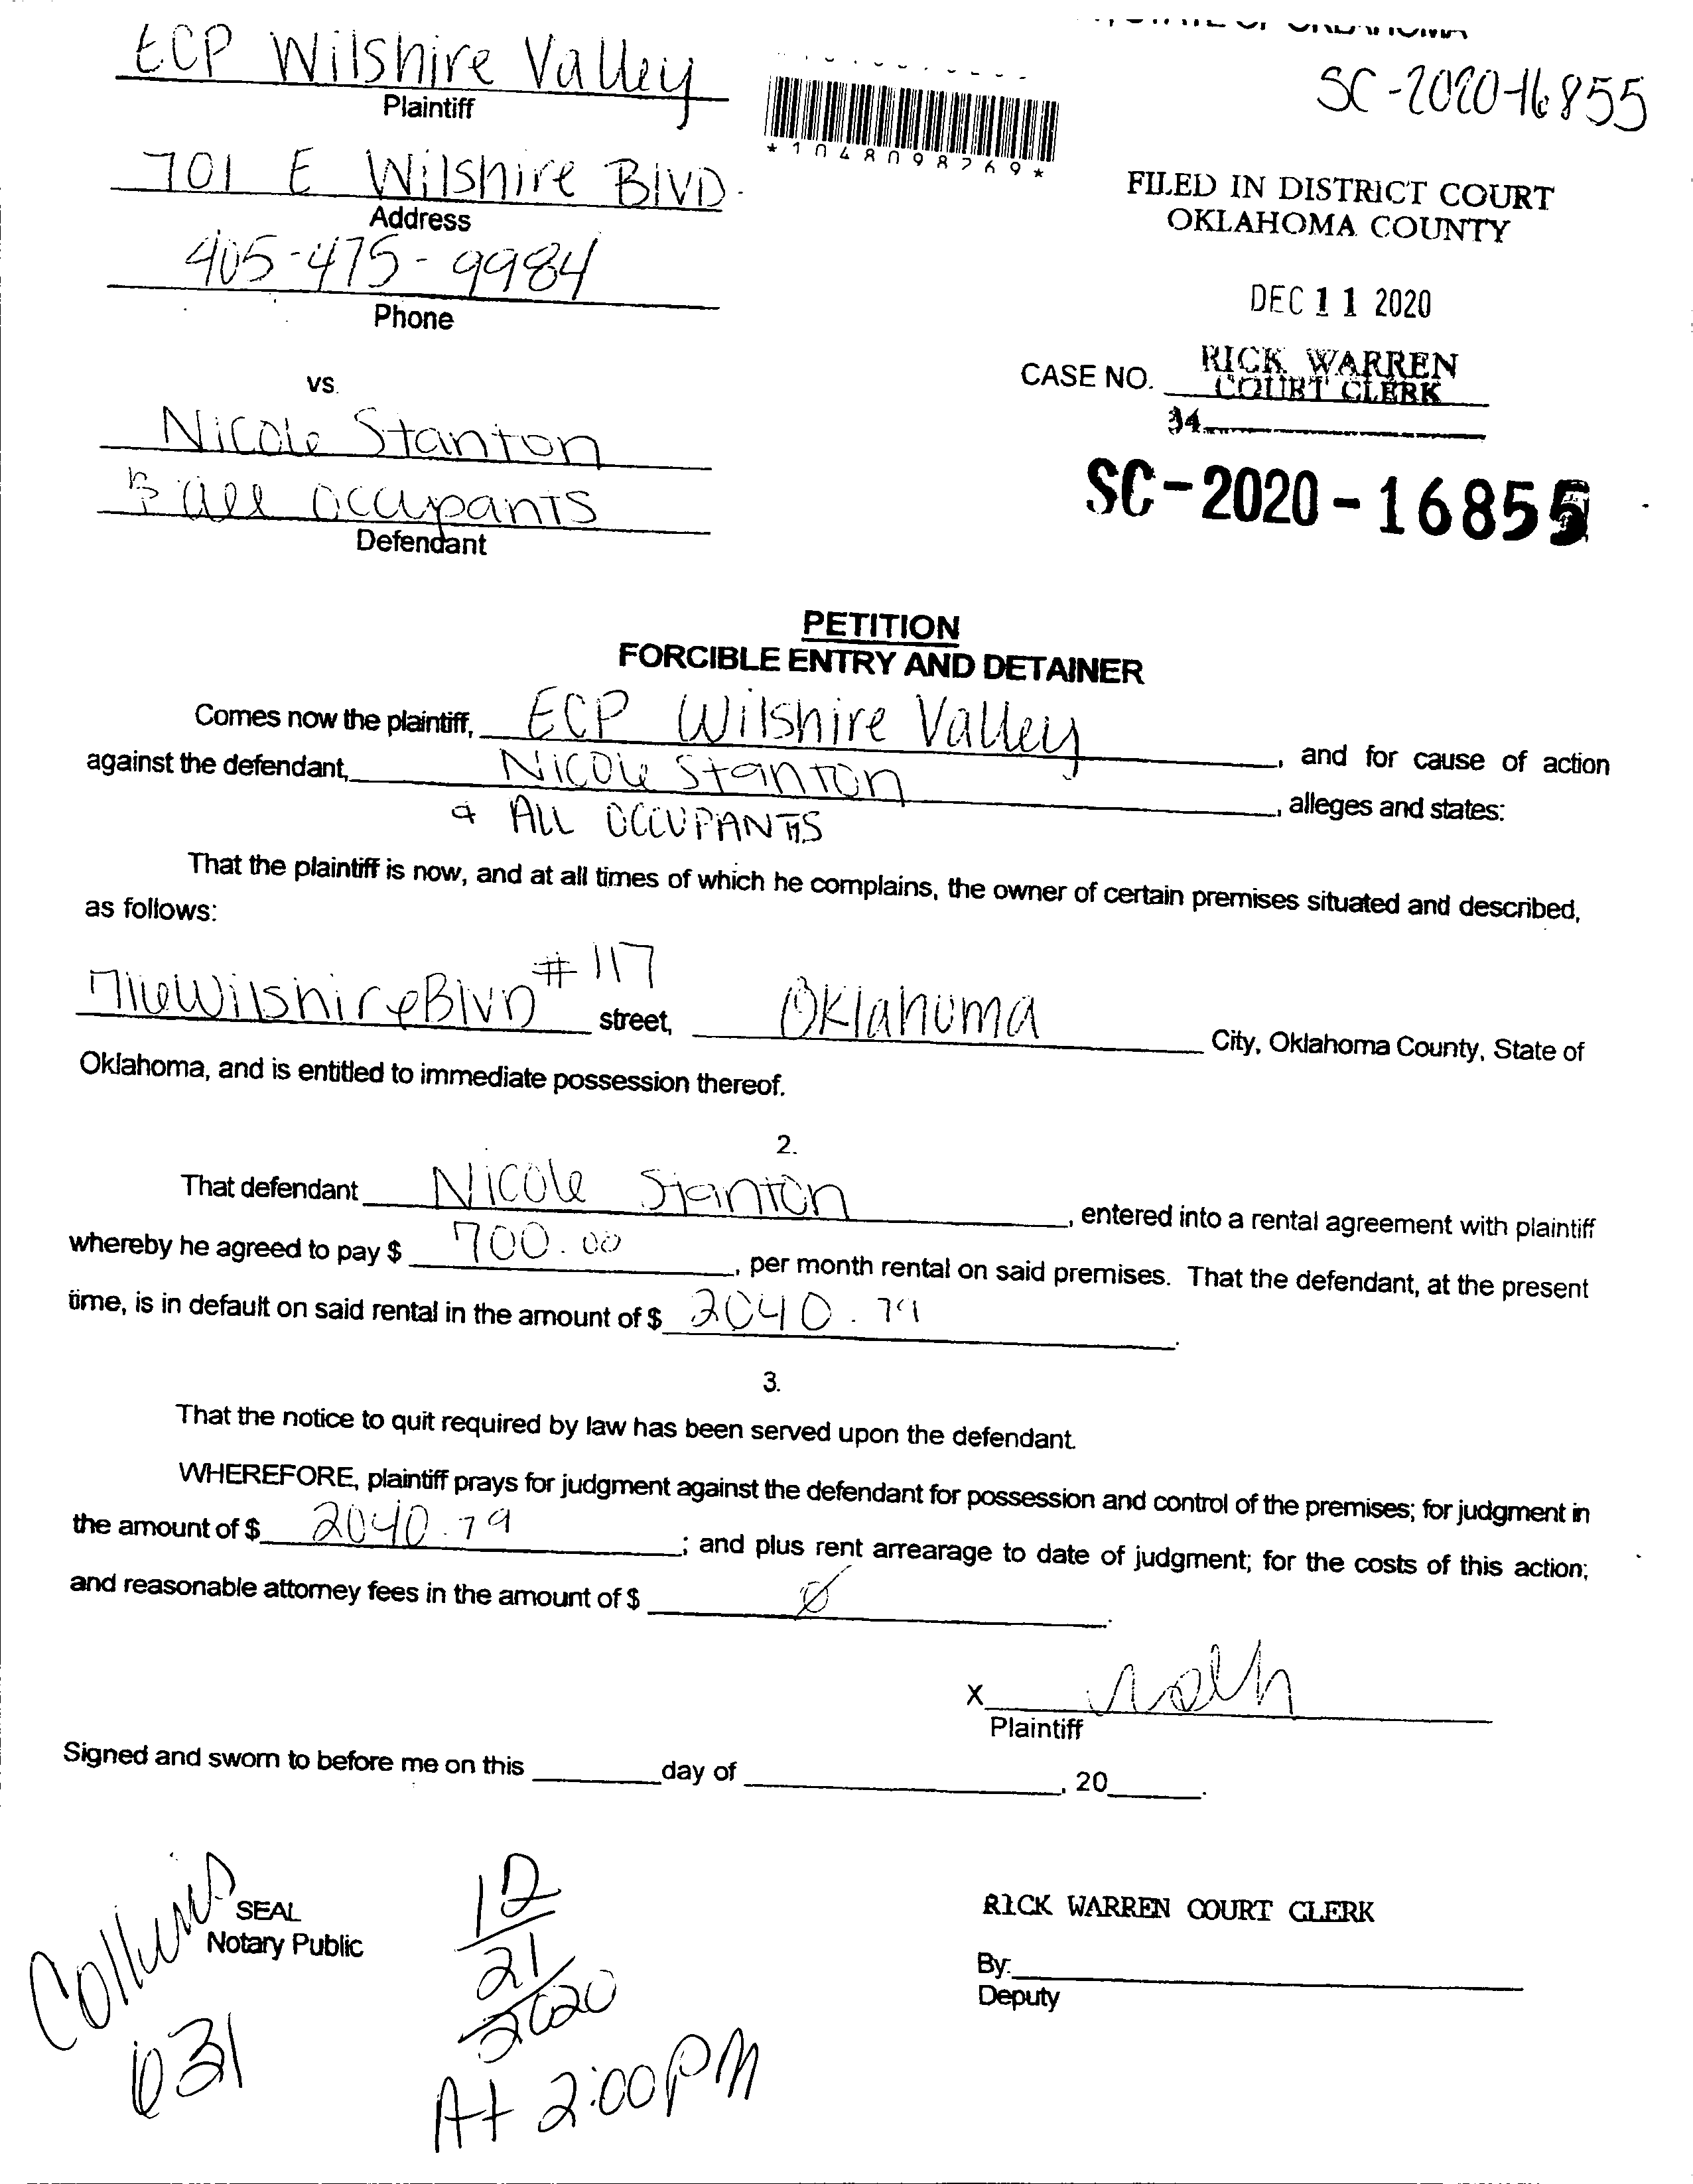 ECP Wilshire Valley
Plaintiff
701 E Wilshire BlVD.
Address
405-475-9984
Phone
vs.
Nicole Stanton
& all occupants
Defendant
STATE OF OKLAHOMA
SC-2020-16855
*1048098769*
FILED IN DISTRICT COURT
OKLAHOMA COUNTY
DEC 11 2020
RICK WARREN
CASE NO. COURT CLERK
34
SC-2020-16855
PETITION
FORCIBLE ENTRY AND DETAINER
Comes now the plaintiff, ECP Wilshire Valley, and for cause of action
against the defendant, Nicole Stanton, alleges and states:
& ALL OCCUPANTS
That the plaintiff is now, and at all times of which he complains, the owner of certain premises situated and described,
as follows:
Wilshire Blvd #117 street, Oklahoma City, Oklahoma County, State of
Oklahoma, and is entitled to immediate possession thereof.
2.
That defendant Nicole Stanton, entered into a rental agreement with plaintiff
whereby he agreed to pay $ 700.00, per month rental on said premises. That the defendant, at the present
time, is in default on said rental in the amount of $ 2040.79.
3.
That the notice to quit required by law has been served upon the defendant.
WHEREFORE, plaintiff prays for judgment against the defendant for possession and control of the premises; for judgment in
the amount of $ 2040.79; and plus rent arrearage to date of judgment; for the costs of this action;
and reasonable attorney fees in the amount of $ Ø.
X
Plaintiff
Signed and sworn to before me on this day of , 20 .
Collins
SEAL
Notary Public
631
12
21
2020
At 2:00PM
RICK WARREN COURT CLERK
By:
Deputy